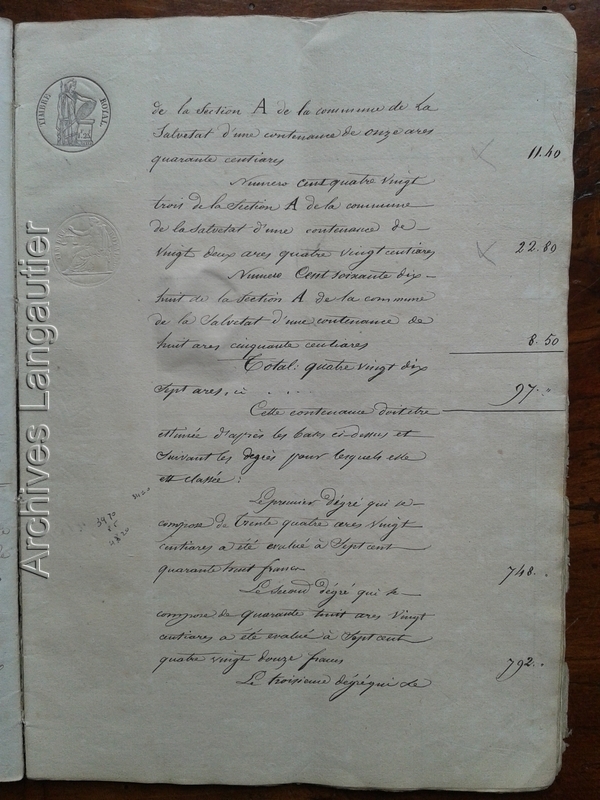 TIMBRE ROYAL
de la Section A de la commune de La
Salvetat d'une contenance de onze ares
quarante centiares 11.40
Numero Cent quatre vingt
trois de la Section A de la commune
de la Salvetat d'une contenance de
vingt deux ares quatre vingt centiares 22.80
Numero Cent soixante dix
huit de la Section A de la commune
de la Salvetat d'une contenance de
huit ares cinquante centiares 8.50
Total: quatre vingt dix
Sept ares, ci . . . . 97 "
Cette contenance doit être
estimée d'après les bases ci-dessus et
suivant les degrés pour lesquels elle
est classée:
Le premier dégré qui se
compose de trente quatre ares vingt
centiares a été evalué à Sept cent
quarante huit francs 748.
Le Second dégré qui se
compose de quarante huit ares vingt
centiares a été evalué à Sept cent
quatre vingt douze francs 792.
Le troisieme dégré qui se
4820
Archives Langautier